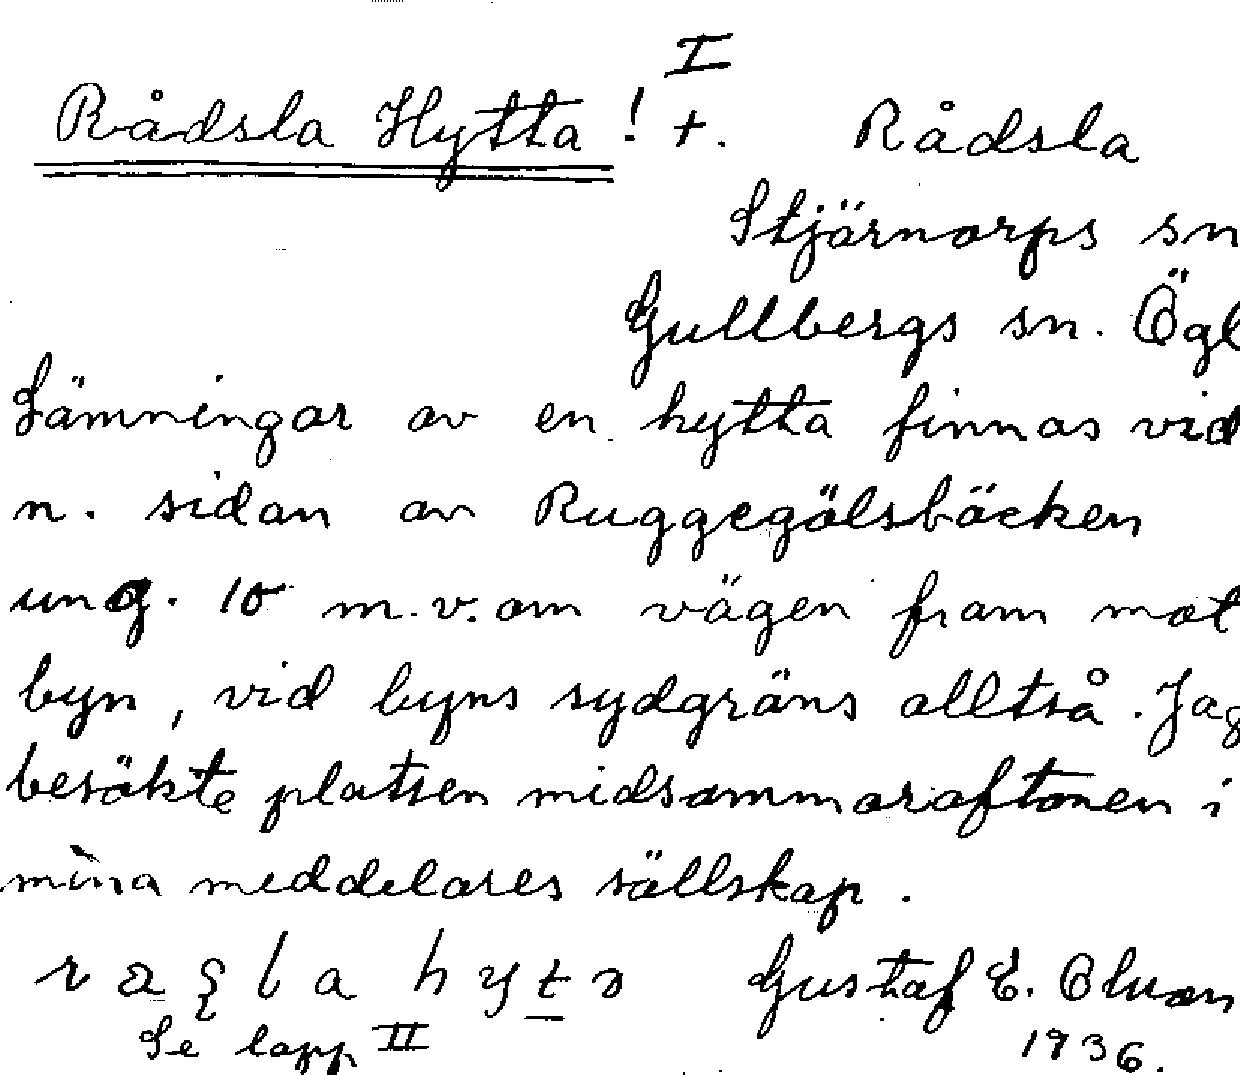 I
Rådsla Hytta! +. Rådsla
Stjärnorps sn
Gullbergs sn. Ögl
Lämningar av en hytta finnas vid
n. sidan av Ruggegölsbäcken
ung. 10 m.v.om vägen fram mot
byn, vid byns sydgräns alltså. Jag
besökte platsen midsommaraftonen i
mina meddelares sällskap.
Gustaf E. Olson
Se lapp II 1936.